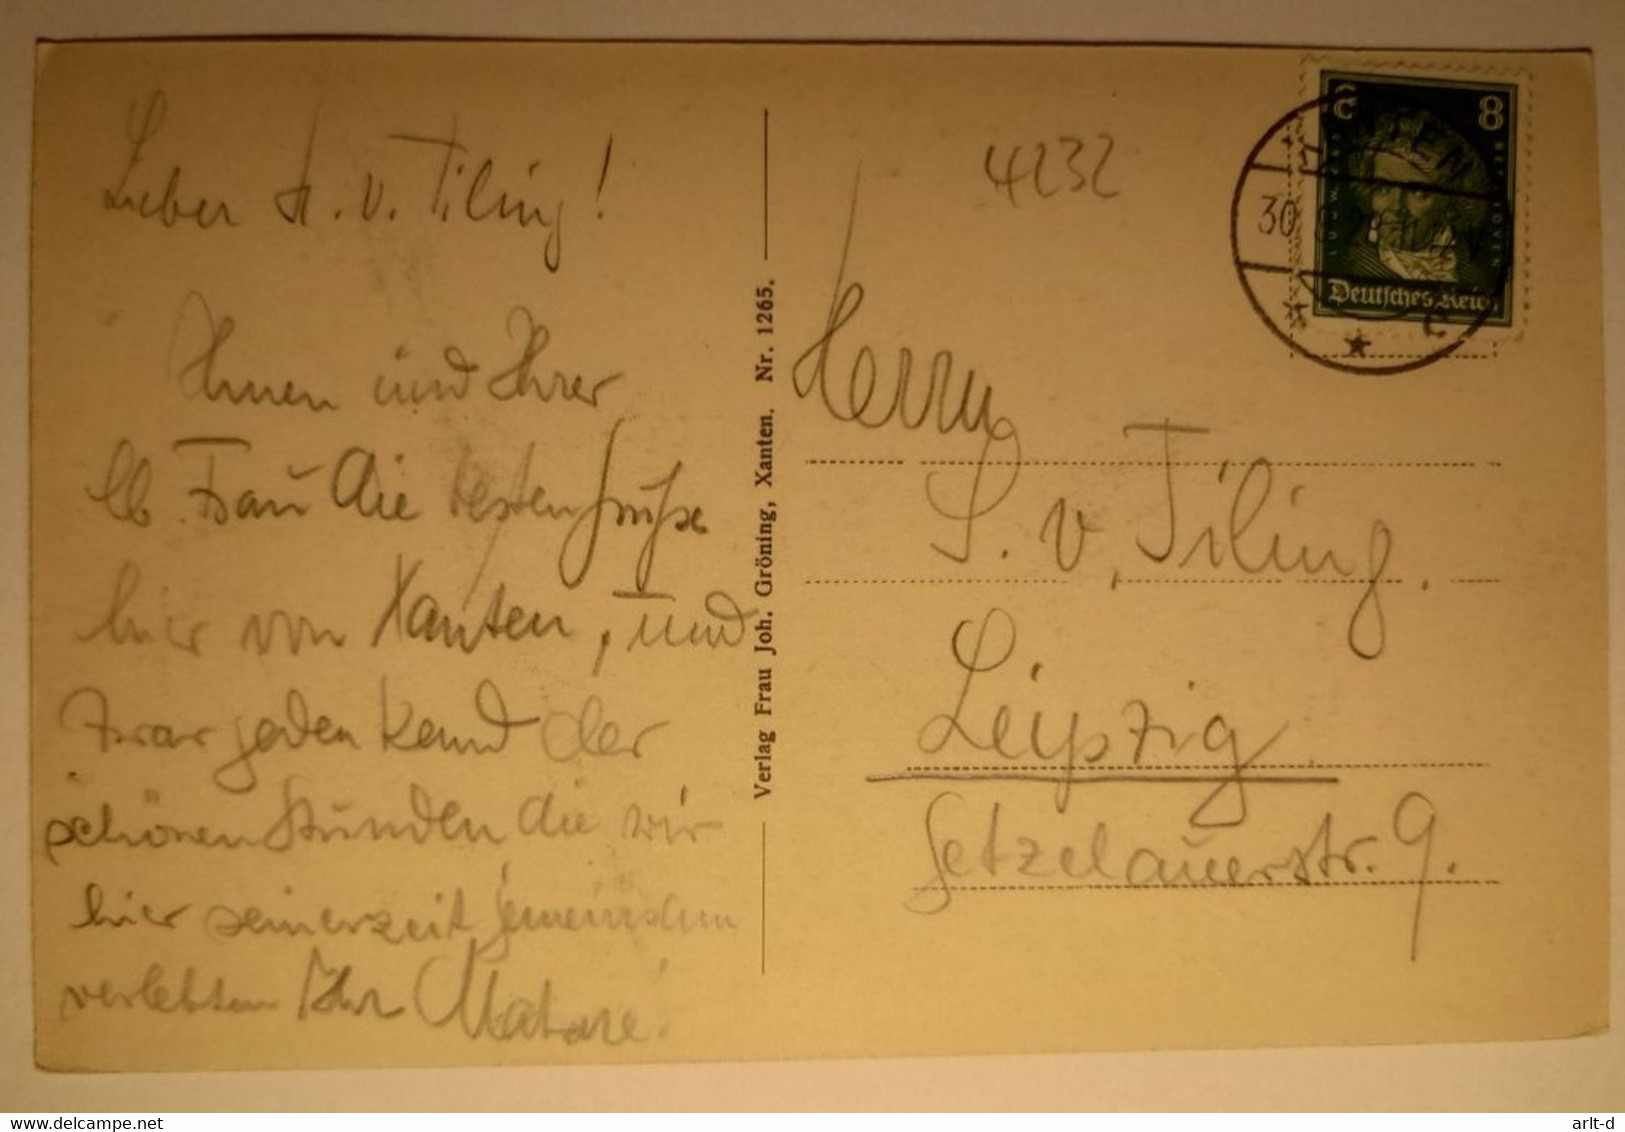 Lieber H. v. Tiling!
Ihnen und Ihrer
lb. Frau die besten Grüße
hier von Xanten, und
zwar jeden kend der
schönen Stunden die wir
hier seinerzeit gemeinsam
verlebten Ihr Mataré.
Verlag Frau Joh. Gröning, Xanten. Nr. 1265.
4232
8 8
LUDW. V.
BEETHOVEN
Deutsches Reich
XANTEN
30. 28.11-12V
* * c
Herrn
S. v. Tiling.
Leipzig
Getzelauerstr. 9.
www.delcampe.net
arlt-d